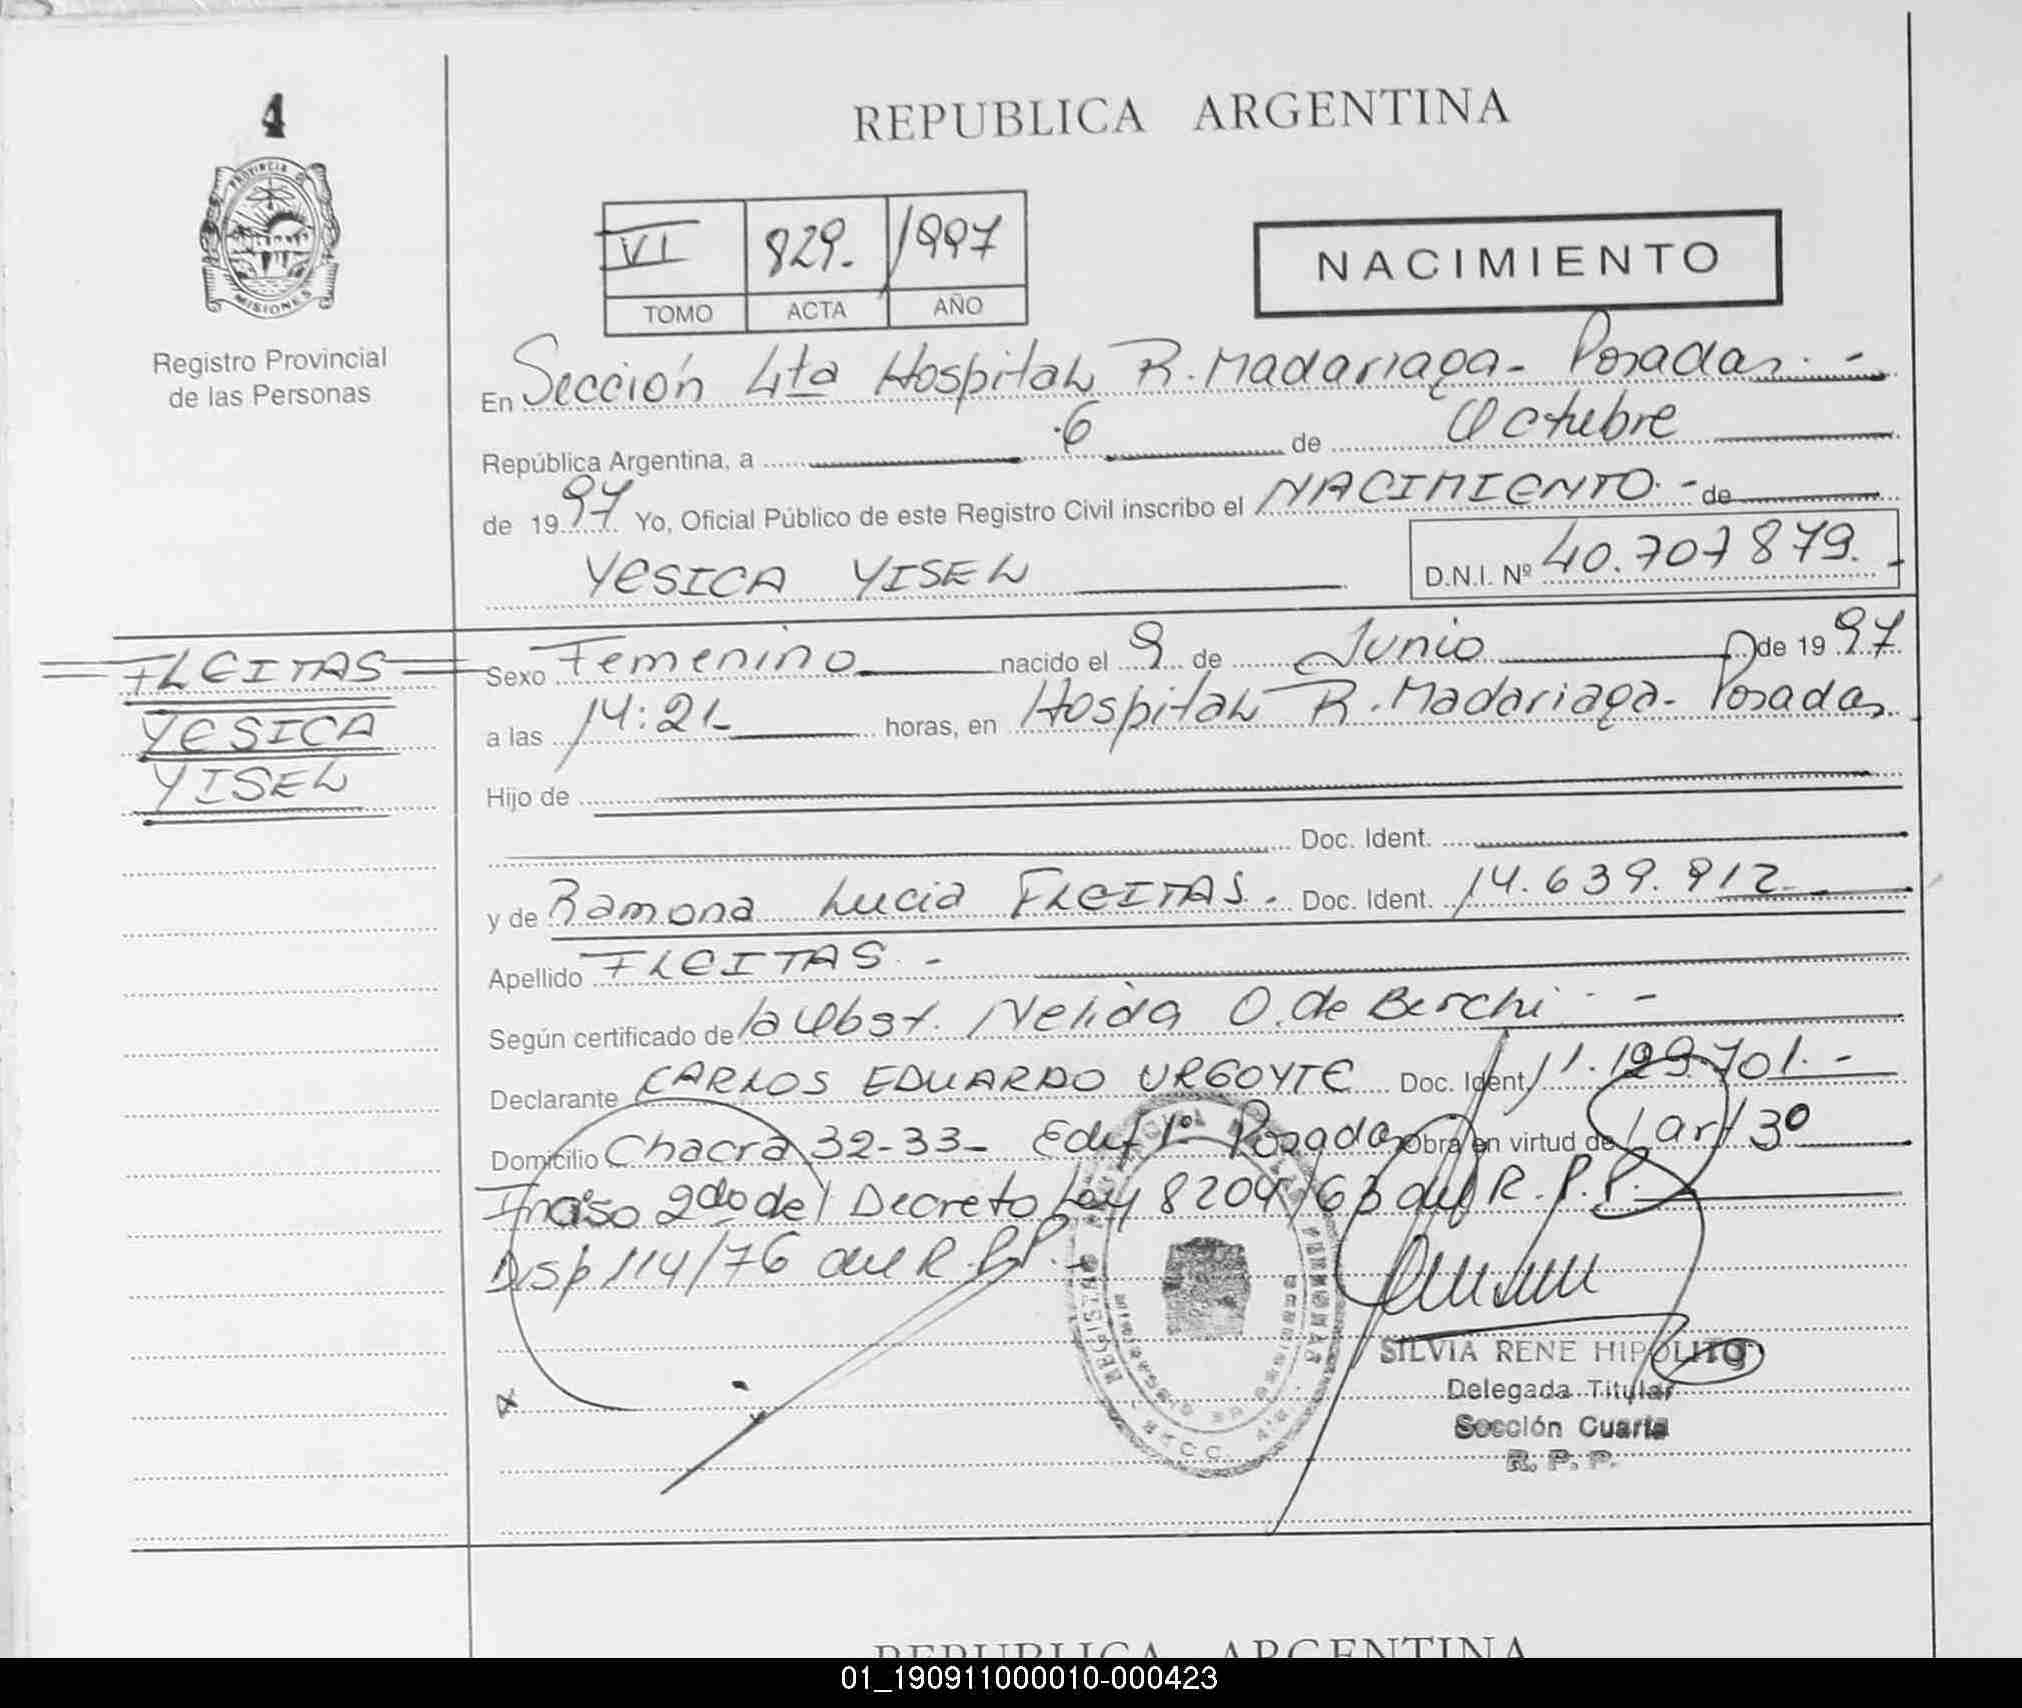 4
PROVINCIA D
MISIONES
Registro Provincial
de las Personas
REPUBLICA ARGENTINA
VI 829. 1997
TOMO ACTA AÑO
NACIMIENTO
En Sección 4ta Hospital R. Madariaga - Posadas. -
República Argentina, a 6 de Octubre
de 1997 Yo, Oficial Público de este Registro Civil inscribo el NACIMIENTO - de
YESICA YISEL D.N.I. Nº 40.707879. -
FLEITAS
YESICA
YISEL
Sexo Femenino nacido el 9 de Junio de 1997
a las 14:21 horas, en Hospital R. Madariaga - Posadas
Hijo de
Doc. Ident.
y de Ramona Lucia FLEITAS. Doc. Ident. 14.639.912 -
Apellido FLEITAS. -
Según certificado de la Obst. Nelida O. de Berchi. -
Declarante CARLOS EDUARDO URGOYTE Doc. Ident. 11.199.701. -
Domicilio Chacra 32-33- Edif 1º Posadas Obra en virtud del art 3º
Inciso 2do del Decreto Ley 8204/63 del R.P.P.
Disp 114/76 del R.P.P. -
SILVIA RENE HIPOLITO
Delegada Titular
Sección Cuarta
R. P. P.
REPUBLICA ARGENTINA
01_190911000010-000423